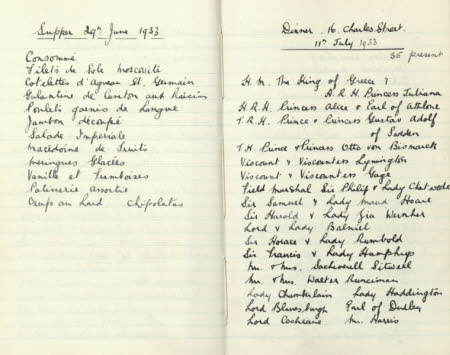 Supper 29th June 1933
Consommé
Filets de Sole moscovite
Cotelettes d'agneau St Germain
Galantine de Canton aux Raisins
Poulets garnis de Langue
Jambon découpé
Salade Imperiale
Macedoine de Fruits
Meringues Glacées
Vanille et Framboises
Patisserie assortie
Oeufs au Lard Chipolates
Dinner. 16. Charles Street.
11th July 1933
36 present
H. M. The King of Greece &
H. R. H. Princess Juliana
H. R. H. Princess Alice & Earl of Athlone
T. R. H. Prince & Princess Gustav Adolf
of Sweden
T. H. Prince & Princess Otto von Bismarck
Viscount & Viscountess Lymington
Viscount & Viscountess Gage
Field Marshal Sir Philip & Lady Chetwode
Sir Samuel & Lady Maud Hoare
Sir Harold & Lady Zia Wernher
Lord & Lady Balniel
Sir Horace & Lady Rumbold
Sir Francis & Lady Humphrys
Mr. & Mrs. Sacheverell Sitwell
Mr. & Mrs. Walter Runciman
Lady Chamberlain Lady Haddington
Lord Blanesburgh Earl of Dudley
Lord Cochrane Mr. Harris